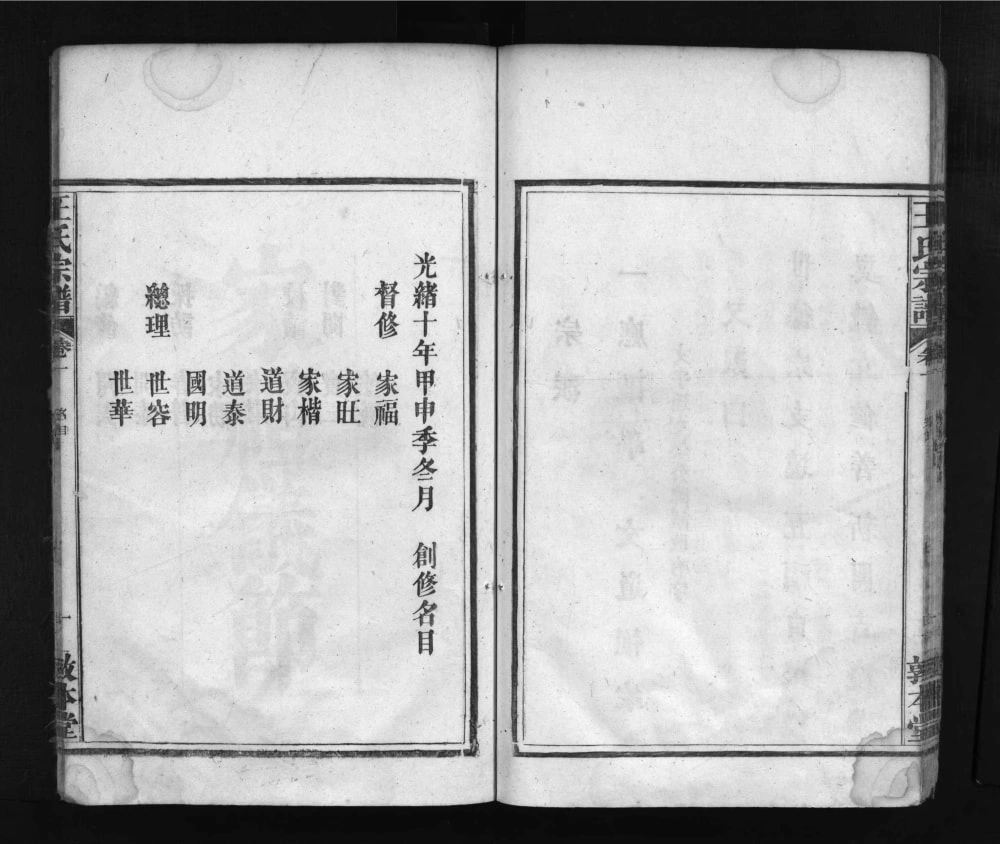 王氏宗譜
卷一
敦本堂
光緒十年甲申季冬月　創修名目
督修　家福
家旺
家楷
道財
道泰
國明
總理　世容
世華
王氏宗譜
卷一
名目
一
敦本堂